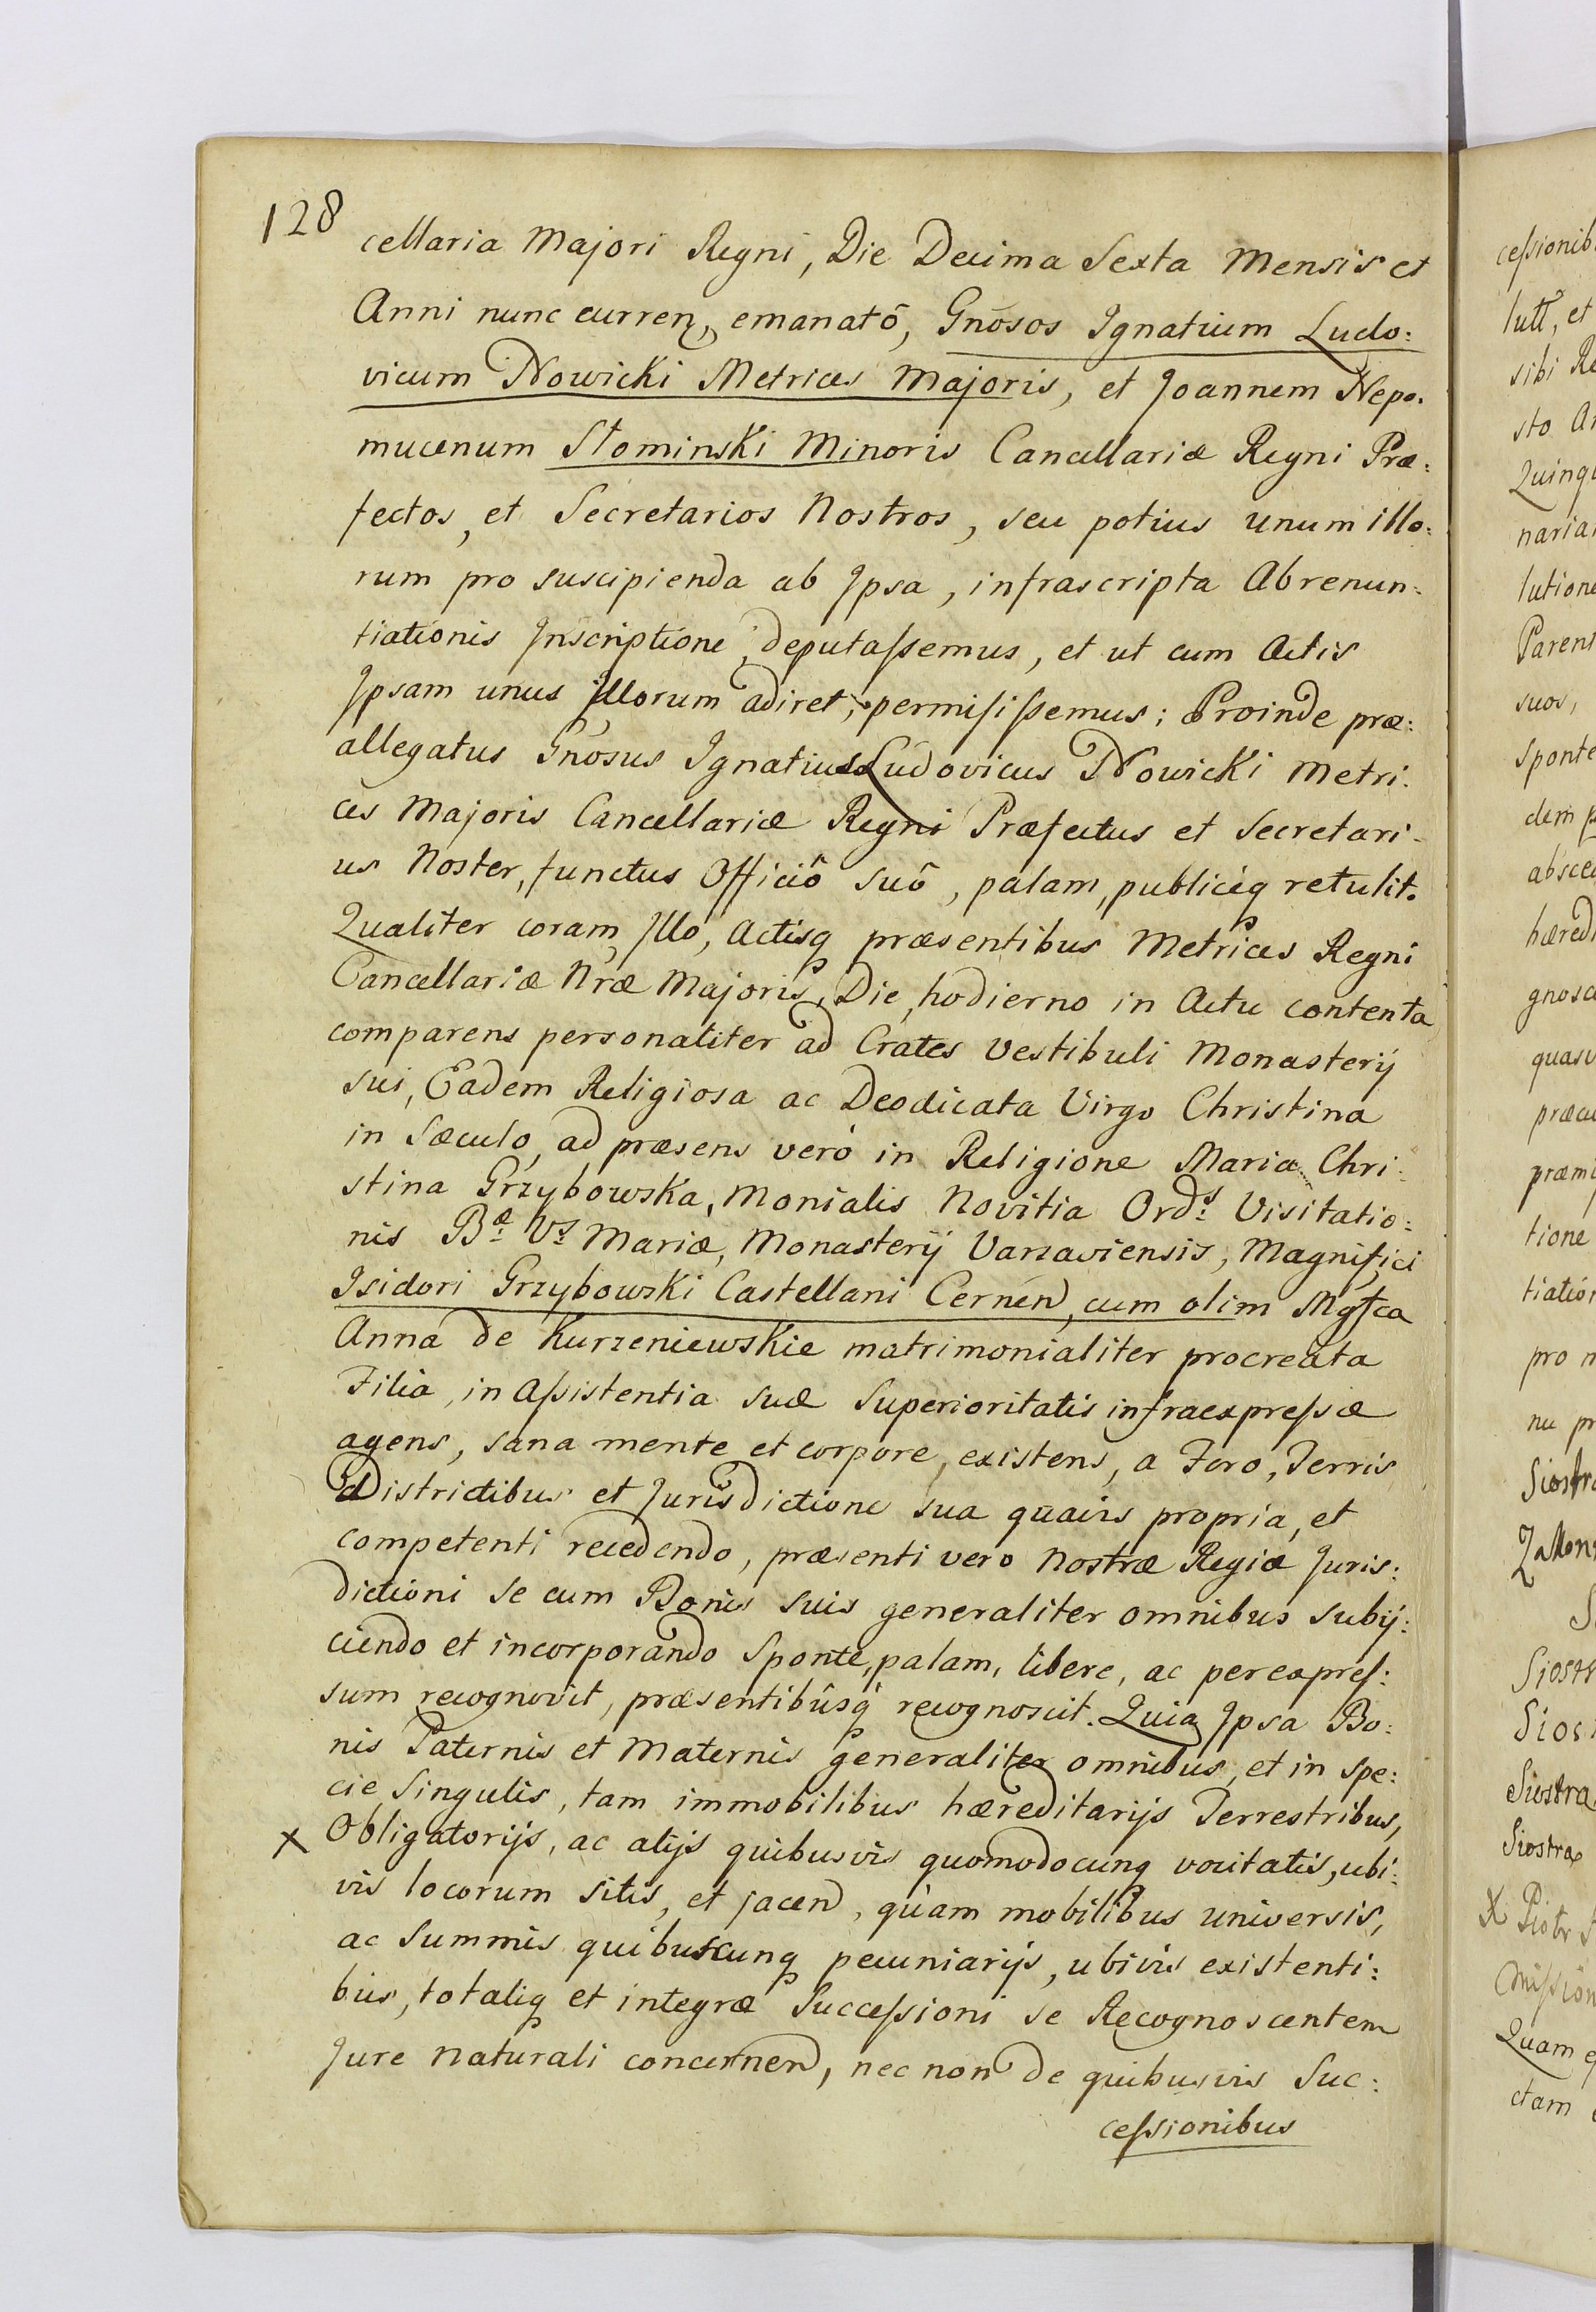 128
cellaria Majori Regni, Die Decima Sexta Mensis et
Anni nunc curren, emanatô, Gnôsos Ignatium Ludo:
vicum Nowicki Metrices Majoris, et Joannem Nepo.
mucenum Słominski Minoris Cancellariæ Regni Præ:
fectos, et Secretarios Nostros, seu potius unum illo:
rum pro suscipienda ab Ipsa, infrascripta Abrenun:
tiationis Inscriptione, deputaſsemus, et ut cum Actis
Ipsam unus Illorum adiret, permisiſsemus; Proinde præ:
allegatus Gnôsus Ignatius Ludovicus Nowicki Metri:
ces Majoris Cancellariæ Regni Præfectus et Secretari-
us Noster, functus Officiô suô, palam, publicèq retulit.
Qualiter coram Illo, Actisq præsentibus Metrices Regni
Cancellariæ Nræ Majoris, Die hodierno in Actu contenta
comparens personaliter ad Crates Vestibuli Monasterij
sui, Eadem Religiosa ac Deodicata Virgo Christina
in Sæculo, ad præsens verò in Religione Maria Chri:
stina Grzybowska, Monialis Novitia Ords Visitatio:
nis Bæ Vs Mariæ, Monasterij Varsaviensis, Magnifici
Isidori Grzybowski Castellani Cernen, cum olim Mgfca
Anna de Kurzeniewskie matrimonialiter procreata
Filia, in Aſsistentia suæ Superioritatis infraexpreſsæ
agens, sana mente et corpore, existens, a Foro, Terris
Districtibus et Jurisdictione sua quavis propria, et
competenti recedendo, præsenti vero Nostræ Regiæ Juris:
dictioni se cum Bonis suis generaliter omnibus subij:
ciendo et incorporando Sponte, palam, libere, ac perexpreſ:
sum recognovit, præsentibûsq recognoscit. Quia Ipsa Bo:
nis Paternis et Maternis generaliter omnibus, et in spe:
cie Singulis, tam immobilibus hæreditarijs Terrestribus,
x Obligatorijs, ac alijs quibusvis quomodocunq vocitatis, ubi:
vis locorum sitis, et jacen, quàm mobilibus universis,
ac Summis quibuscunq pecuniarijs, ubivis existenti:
bus, totaliq et integræ Succeſsioni se Recognoscentem
Jure naturali concernen, nec non de quibusvis Suc:
ceſsionibus
ceſsionib
lutt, et
sibi Re
sto
Quinq
naria
lutione
Parent
suos,
Sponte
dem
absce
hæred
gnosc
quasv
præcu
præmi
tione
tiation
pro n
nu pr
Siostra
Zakon
Siostr
Sios
Siostra
Siostra
X Piotr
Miſsion
Quam
ctam